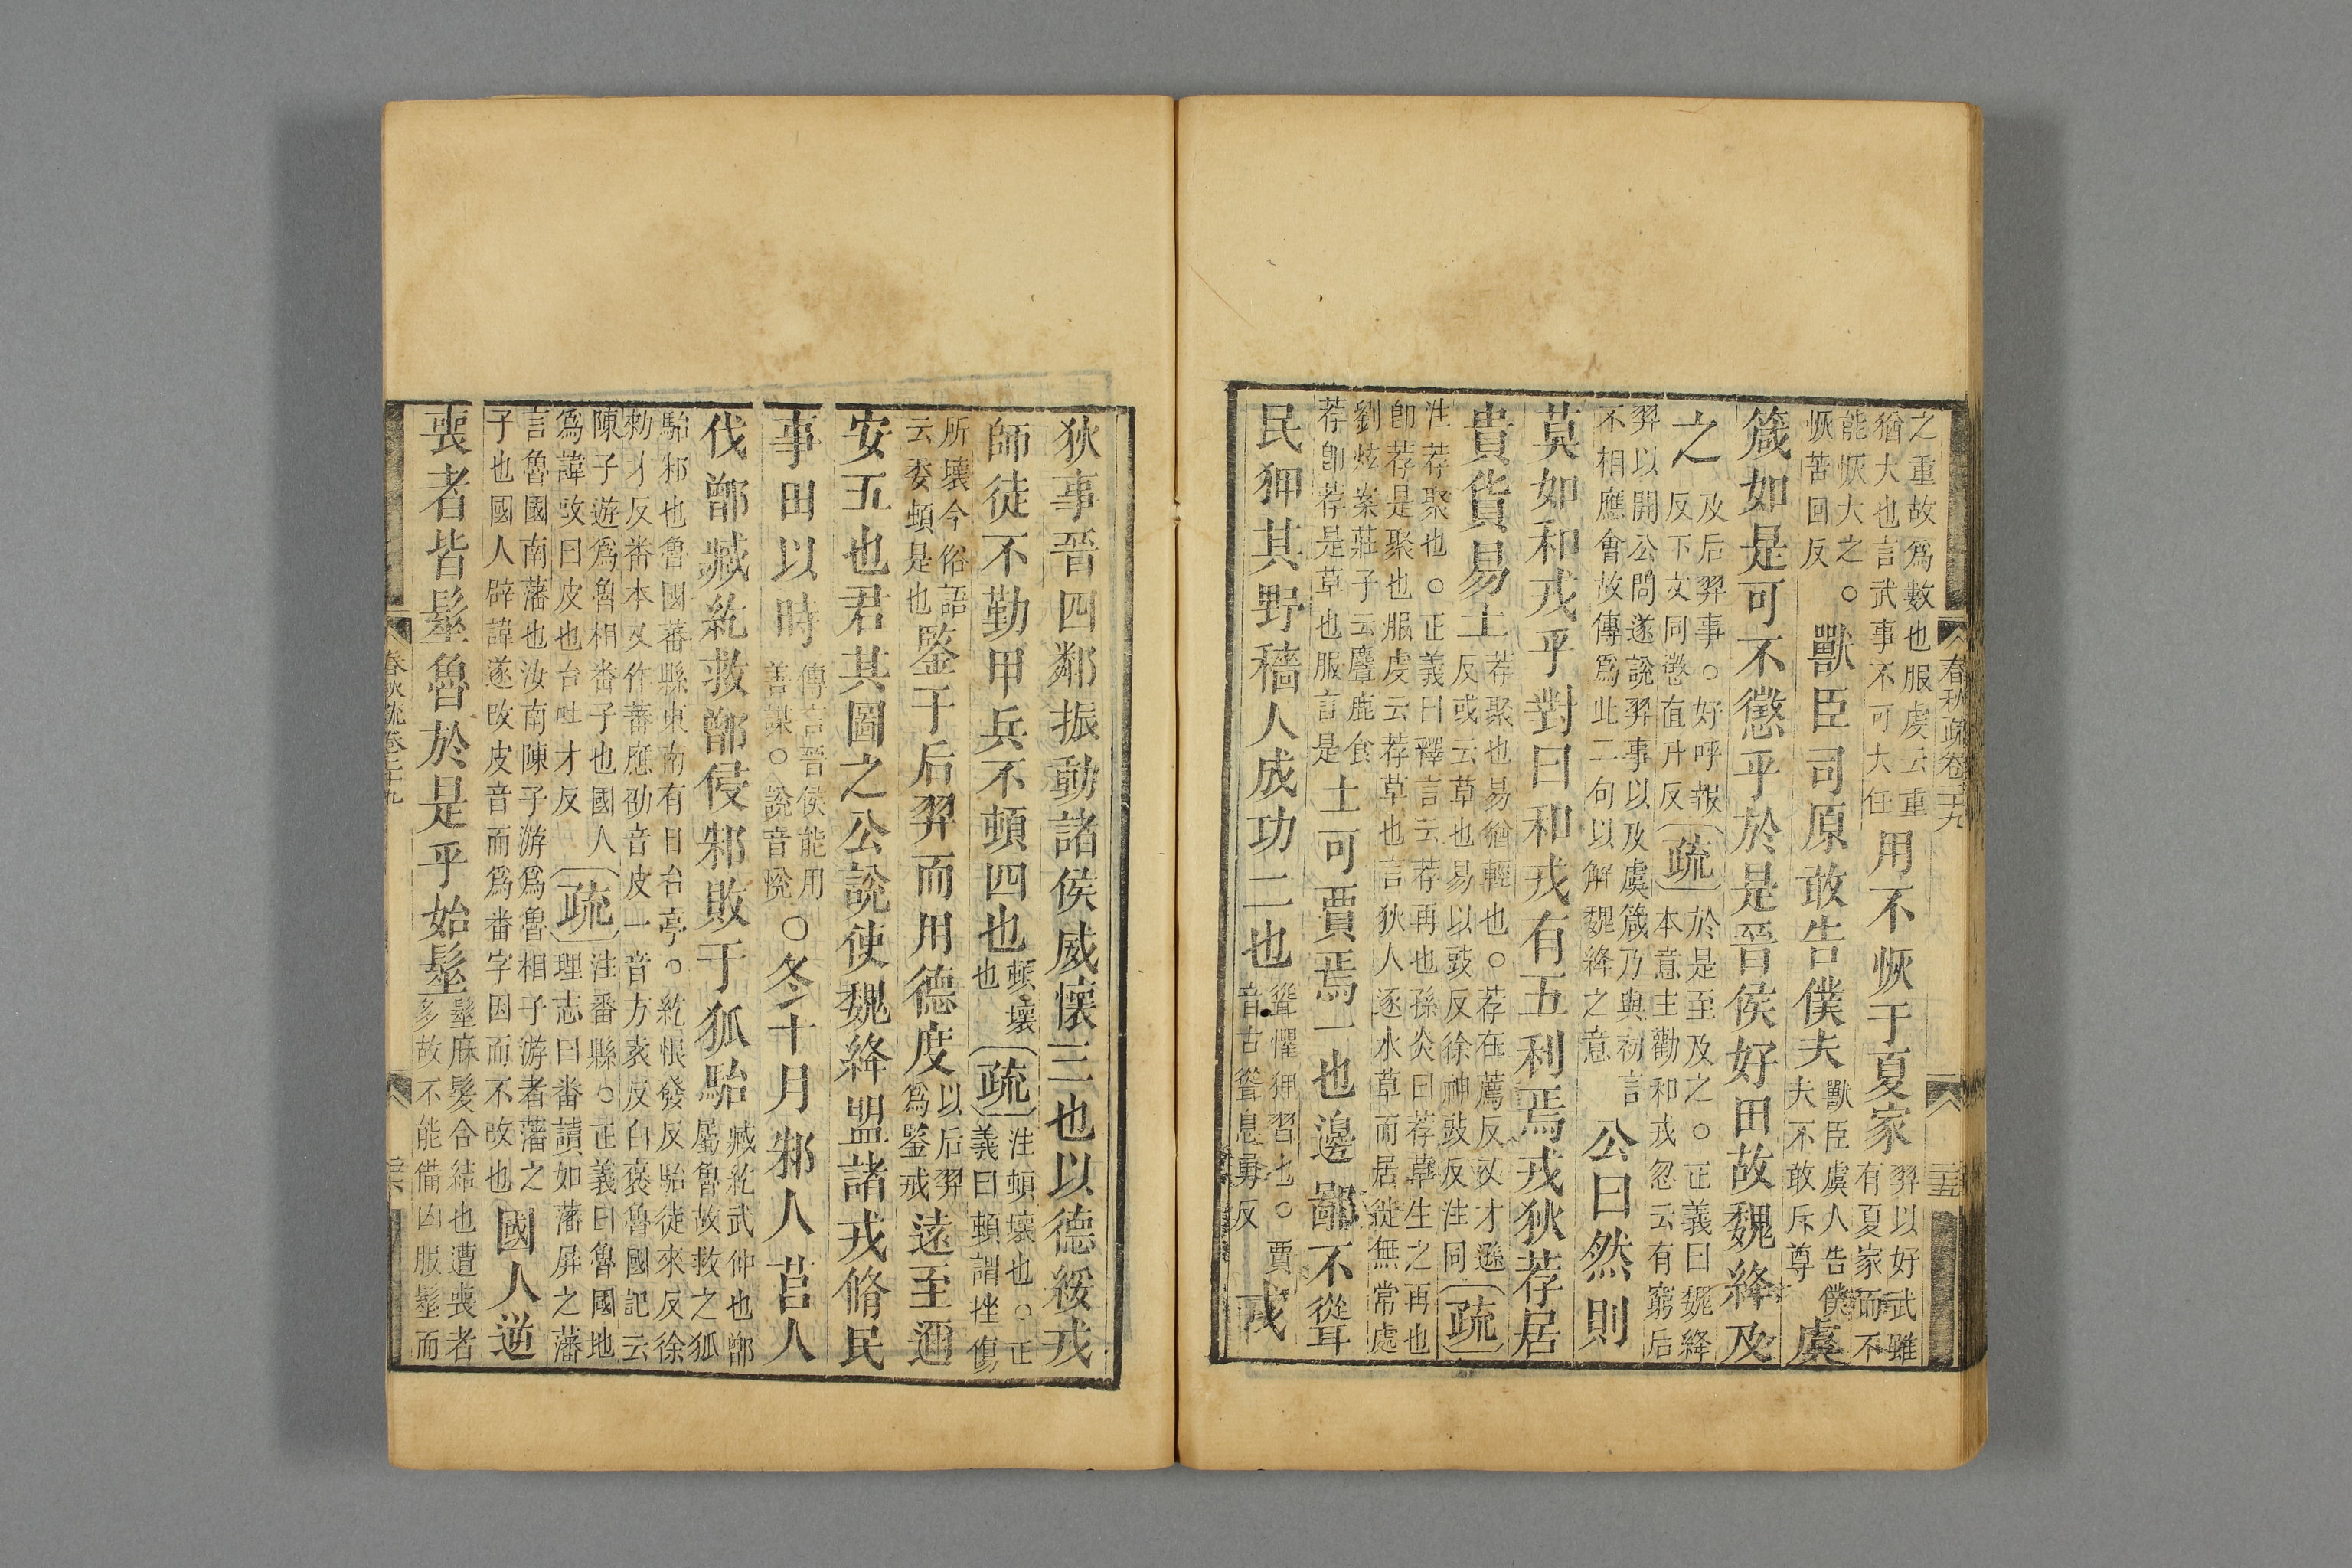 之重故爲數也服虔云重猶大也言武事不可大任用不恢于夏家羿以好武雖有夏家而不
能恢大之○恢苦回反獸臣司原敢告僕夫獸臣虞人告僕夫不敢斥尊虞
箴如是可不懲乎於是晉侯好田故魏絳及
之及后羿事○好呼報反下文同懲直升反疏於是至及之○正義曰魏絳本意主勸和戎忽云有窮后
羿以開公問遂說羿事以及虞箴乃與初言不相應會故傳爲此二句以解魏絳之意公曰然則
莫如和戎乎對曰和戎有五利焉戎狄荐居
貴貨易土荐聚也易猶輕也○荐在薦反又才遜反或云草也易以豉反徐神豉反注同疏
注荐聚也○正義曰釋言云荐再也孫炎曰荐草生之再也卽荐是聚也服虔云荐草也言狄人逐水草而居徙無常處
劉炫案莊子云麋鹿食荐卽荐是草也服言是土可賈焉一也邊鄙不聳
民狎其野穡人成功二也聳懼狎習也○賈音古聳息勇反戎
春秋疏卷二十九
三十五
狄事晉四鄰振動諸侯威懷三也以德綏戎
師徒不勤甲兵不頓四也頓壞也疏注頓壞也○正義曰頓謂挫傷
所壞今俗語云委頓是也鑒于后羿而用德度以后羿爲鑒戒遠至邇
安五也君其圖之公說使魏絳盟諸戎脩民
事田以時傳言晉侯能用善謀○說音悅○冬十月邾人莒人
伐鄫臧紇救鄫侵邾敗于狐駘臧紇武仲也鄫屬魯故救之狐
駘邾也魯國蕃縣東南有目台亭○紇恨發反駘徒來反徐勑才反番本又作蕃應劭音皮一音方袁反白褒魯國記云
陳子遊爲魯相番子也國人爲諱改曰皮也台吐才反疏注番縣○正義曰魯國地理志曰番讀如藩屏之藩
言魯國南藩也汝南陳子游爲魯相子游者藩之子也國人辟諱遂改皮音而爲番字因而不改也國人逆
喪者皆髽魯於是乎始髽髽麻髮合結也遭喪者多故不能備凶服髽而
春秋疏卷二十九